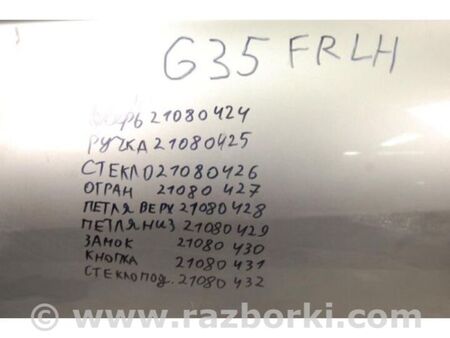 G35 FRLH
ДВЕРЬ 21080424
РУЧКА 21080425
СТЕКЛО 21080426
ОГРАН 21080 427
ПЕТЛЯ ВЕРХ 21080428
ПЕТЛЯ НИЗ 21080429
ЗАМОК 21080 430
КНОПКА 21080 431
СТЕКЛОПОД. 21080 432
www.razborki.com